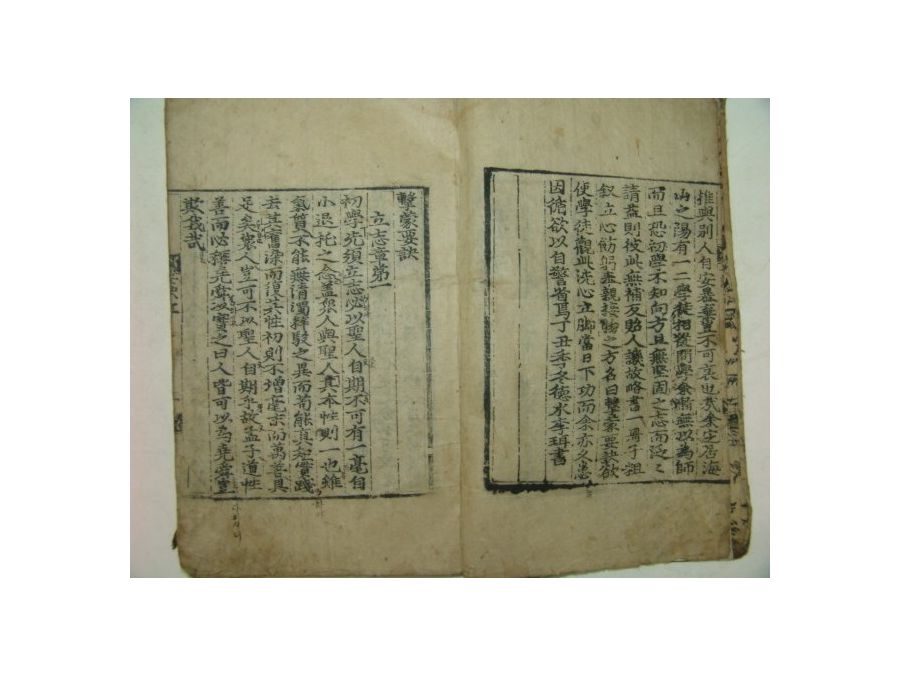 推與別人自安暴棄豈不可哀也哉余定居海
山之陽有一二學徒相從問學余慚無以為師
而且恐初學不知向方且無堅固之志而泛泛
請益則彼此無補反貽人譏故略書一冊子粗
敍立心飭躬奉親接物之方名曰擊蒙要訣欲
使學徒觀此洗心立脚當日下功而余亦久患
因循欲以自警省焉丁丑季冬德水李珥書
擊蒙要訣
立志章第一
初學先須立志必以聖人自期不可有一毫自
小退托之念盖衆人與聖人其本性則一也雖
氣質不能無淸濁粹駁之異而苟能真知實踐
去其舊染而復其性初則不增毫末而萬善具
足矣衆人豈可不以聖人自期乎故孟子道性
善而必稱堯舜以實之曰人皆可以為堯舜豈
欺我哉